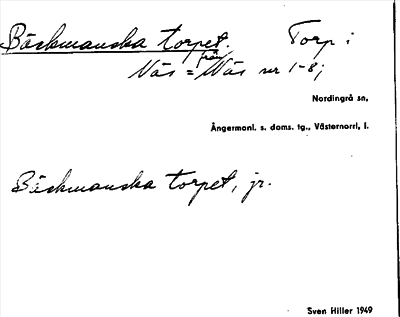 Bäckmanska torpet. Torp i
från
Näs = Näs nr 1-8;
Nordingrå sn,
Ångermanl. s. doms. tg., Västernorrl. l.
Bäckmanska torpet, jr.
Sven Hiller 1949